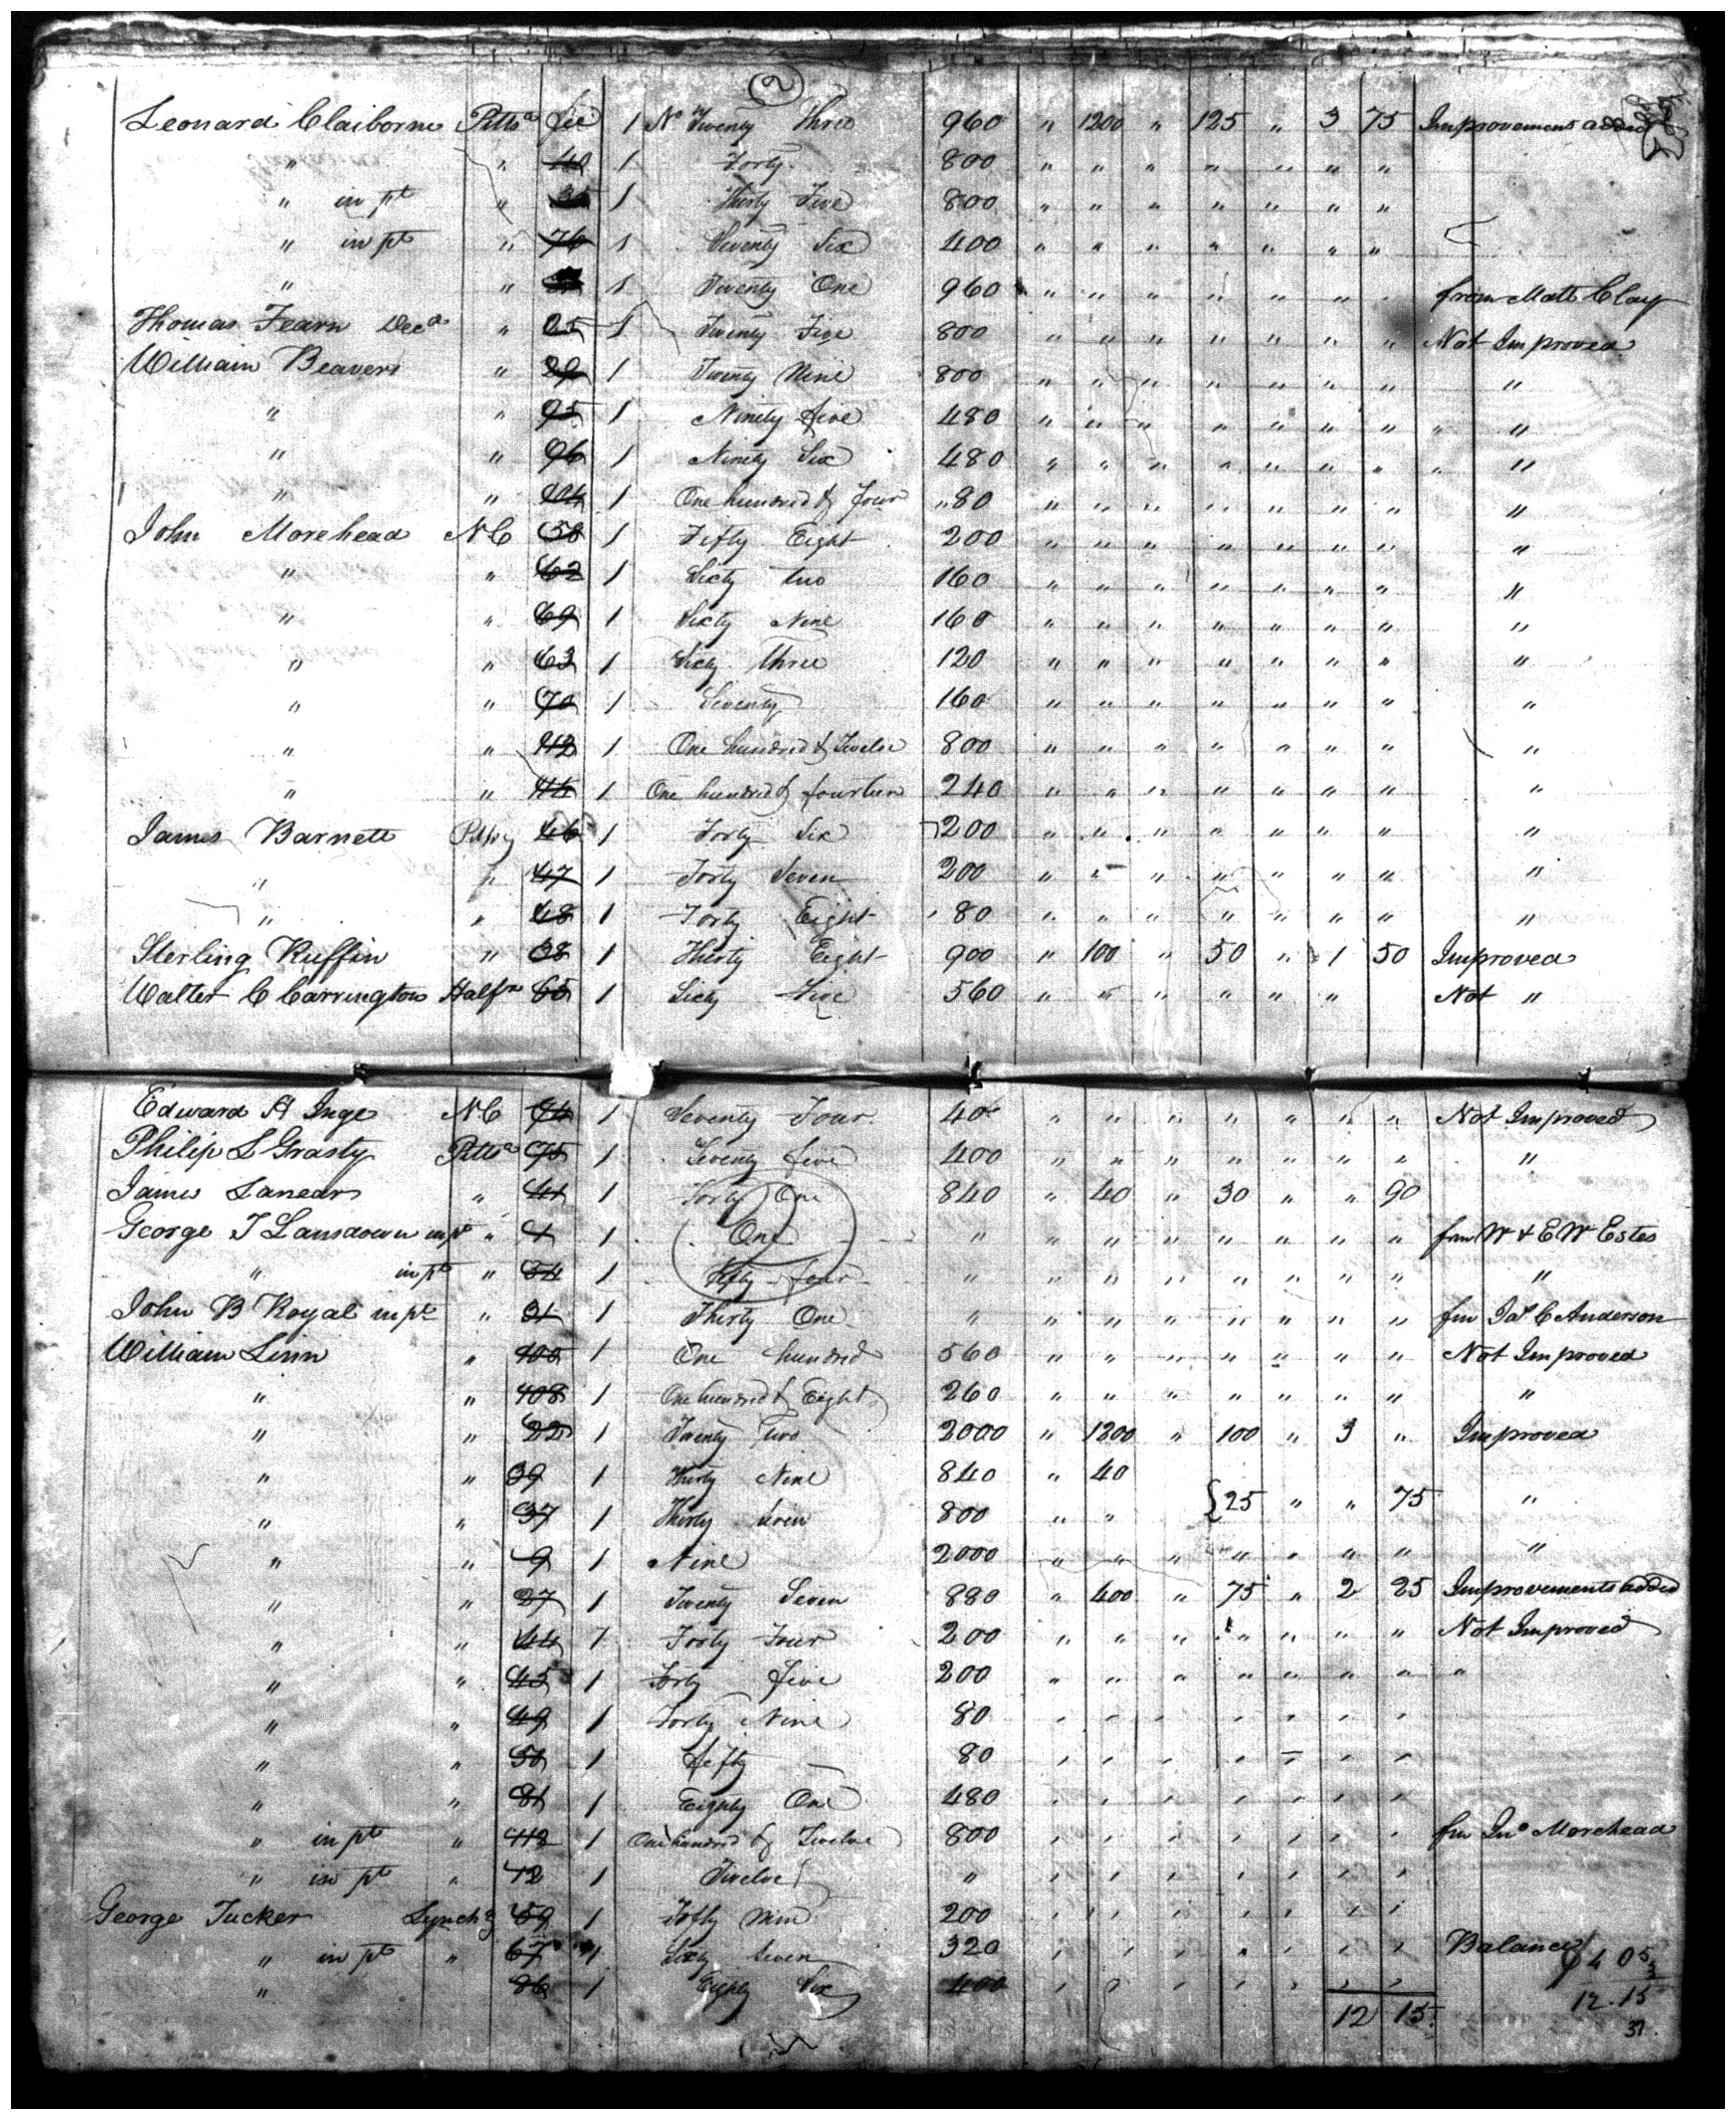 2
Leonard Claiborne Pittsa fee 1 No Twenty Three 960 " 1200 " 125 " 3 75 Improvement added
" " 40 1 Forty 800 " " " " " " "
" in pt " 35 1 Thirty Five 800 " " " " " " "
" in pt " 76 1 Seventy Six 400 " " " " " " "
" " 1 Twenty One 960 " " " " " " from Matt Clay
Thomas Fearn Decd " 25 1 Twenty Five 800 " " " " " " " Not Improved
William Beavers " 29 1 Twenty Nine 800 " " " " " " " "
" " 95 1 Ninety five 480 " " " " " " " " "
" " 96 1 Ninety Six 480 " " " " " " " " "
" " 104 1 One hundred & four " 80 " " " " " " " "
John Morehead NC 58 1 Fifty Eight 200 " " " " " " " "
" " 62 1 Sixty two 160 " " " " " " " "
" " 69 1 Sixty Nine 160 " " " " " " " "
" " 63 1 Sixty three 120 " " " " " " " "
" " 70 1 Seventy 160 " " " " " " " "
" " 112 1 One hundred & Twelve 800 " " " " " " " "
" " 114 1 One hundred & fourteen 240 " " " " " " " "
James Barnett 46 1 Forty Six 200 " " " " " " " "
" " 47 1 Forty Seven 200 " " " " " " " "
" " 48 1 Forty Eight 80 " " " " " " " "
Sterling Ruffin " 38 1 Thirty Eight 900 " 100 " 50 " 1 50 Improved
Walter C Carrington Halfx 65 1 Sixty Five 560 " " " " " " Not "
Edward H Inge NC 74 1 Seventy Four 400 " " " " " " " Not Improved
Philip L Grasty Pittsa 75 1 Seventy five 400 " " " " " " " "
James Lanear " 41 1 Forty One 840 " 40 " 30 " " 90
George T Lansdown in pt " 1 1 One " " " " " " " " fm W & E W Estes
" in pt " 54 1 fifty four " " " " " " " " "
John B Royal in pt " 31 1 Thirty One " " " " " " " " fm Jas C Anderson
William Linn " 100 1 One hundred 560 " " " " " " " Not Improved
" " 108 1 One hundred & Eight 260 " " " " " " " "
" " 22 1 Twenty Two 2000 " 1200 " 100 " 3 " Improved
" " 39 1 Thirty Nine 840 " 40
" " 37 1 Thirty Seven 800 " " { 25 " " 75 "
" " 9 1 Nine 2000 " " " " " " " "
" " 27 1 Twenty Seven 880 " 400 " 75 " 2 25 Improvements added
" " 44 1 Forty Four 200 " " " " " " " Not Improved
" " 45 1 Forty five 200 " " " " " " " "
" " 49 1 Forty Nine 80 " " " " " " "
" " 50 1 fifty 80 " " " " " " "
" " 81 1 Eighty One 480 " " " " " " "
" in pt " 112 1 One hundred & Twelve 800 " " " " " " " fm Jno Morehead
" in pt " 12 1 Twelve " " " " " " " "
George Tucker Lynchg 59 1 Fifty nine 200 " " " " " " "
" in pt " 67 1 Sixty Seven 320 " " " " " " " Balance
" 86 1 Eighty Six 400 " " " " " " "
4 05
3
12 15 12.15
37